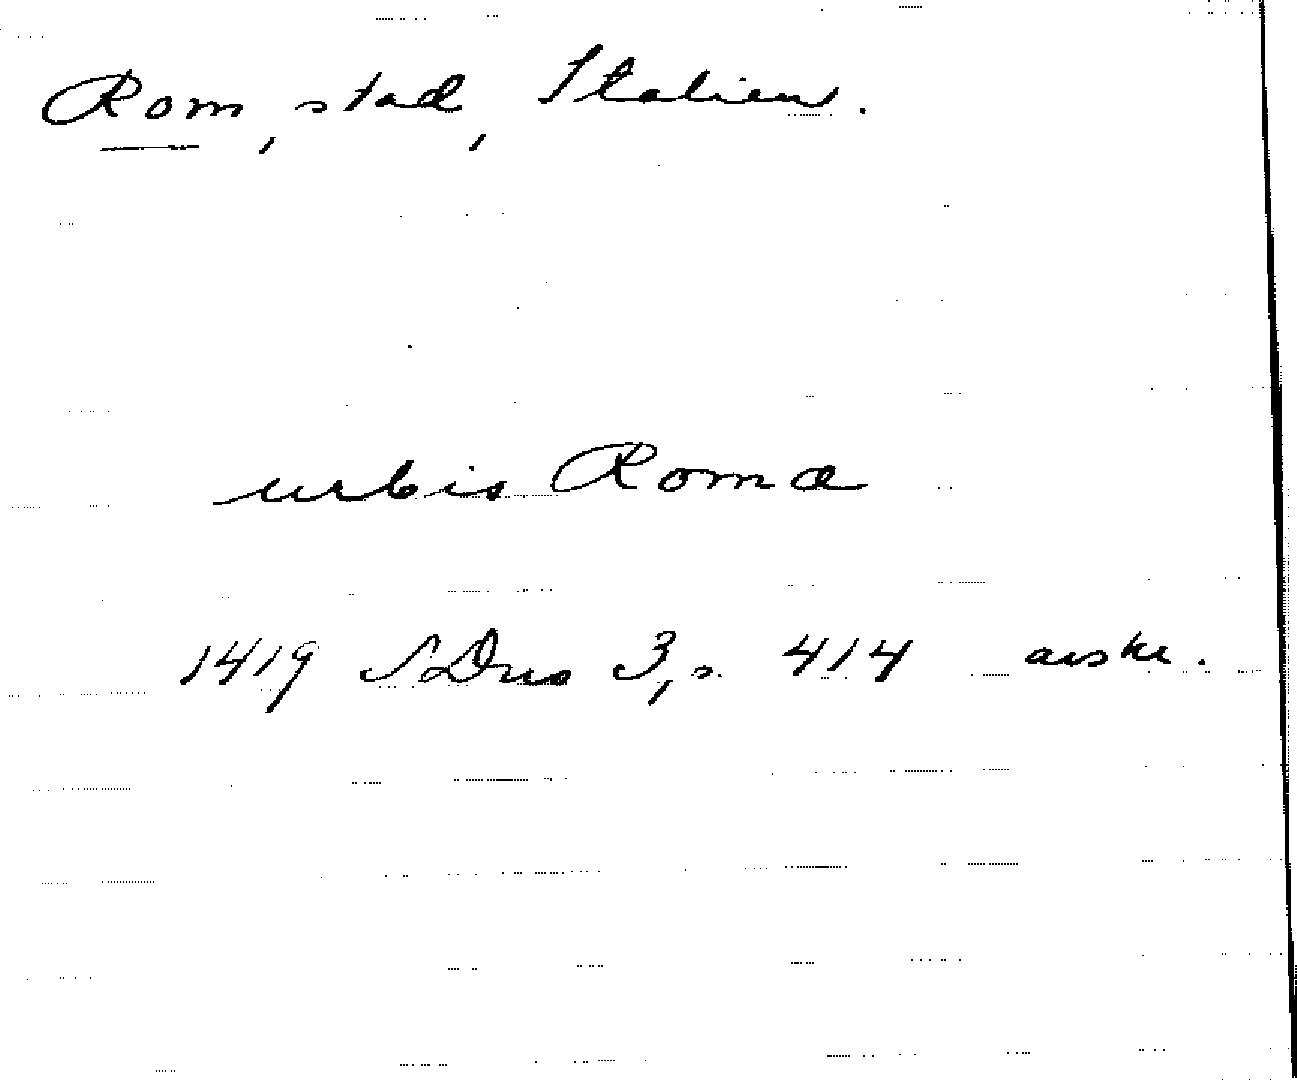 Rom, stad, Italien.
urbis Romæ
1419 SDns 3, s. 414 avskr.